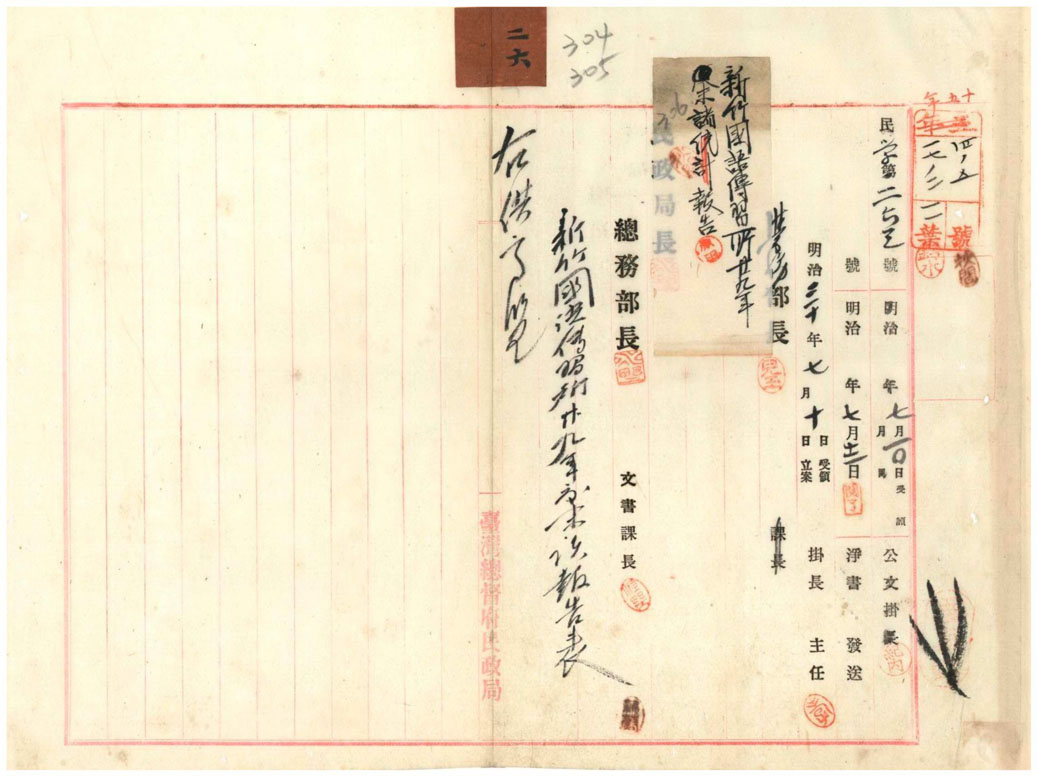 二六
304
305
十五年
四ノ五
一七ノ二
一一
號
葉
民學第二七三號 明治 年七月一〇日受領 公文掛長
號 明治 年七月十二日 淨書 發送
明治三十年七月十日受領 立案 掛長 主任
學務部長 課長
新竹國語傳習所廿九年
度末諸統計報告
306
民政局長
總務部長 文書課長
新竹國語傳習所廿九年度末諸報告表
右供高覽
臺灣總督府民政局